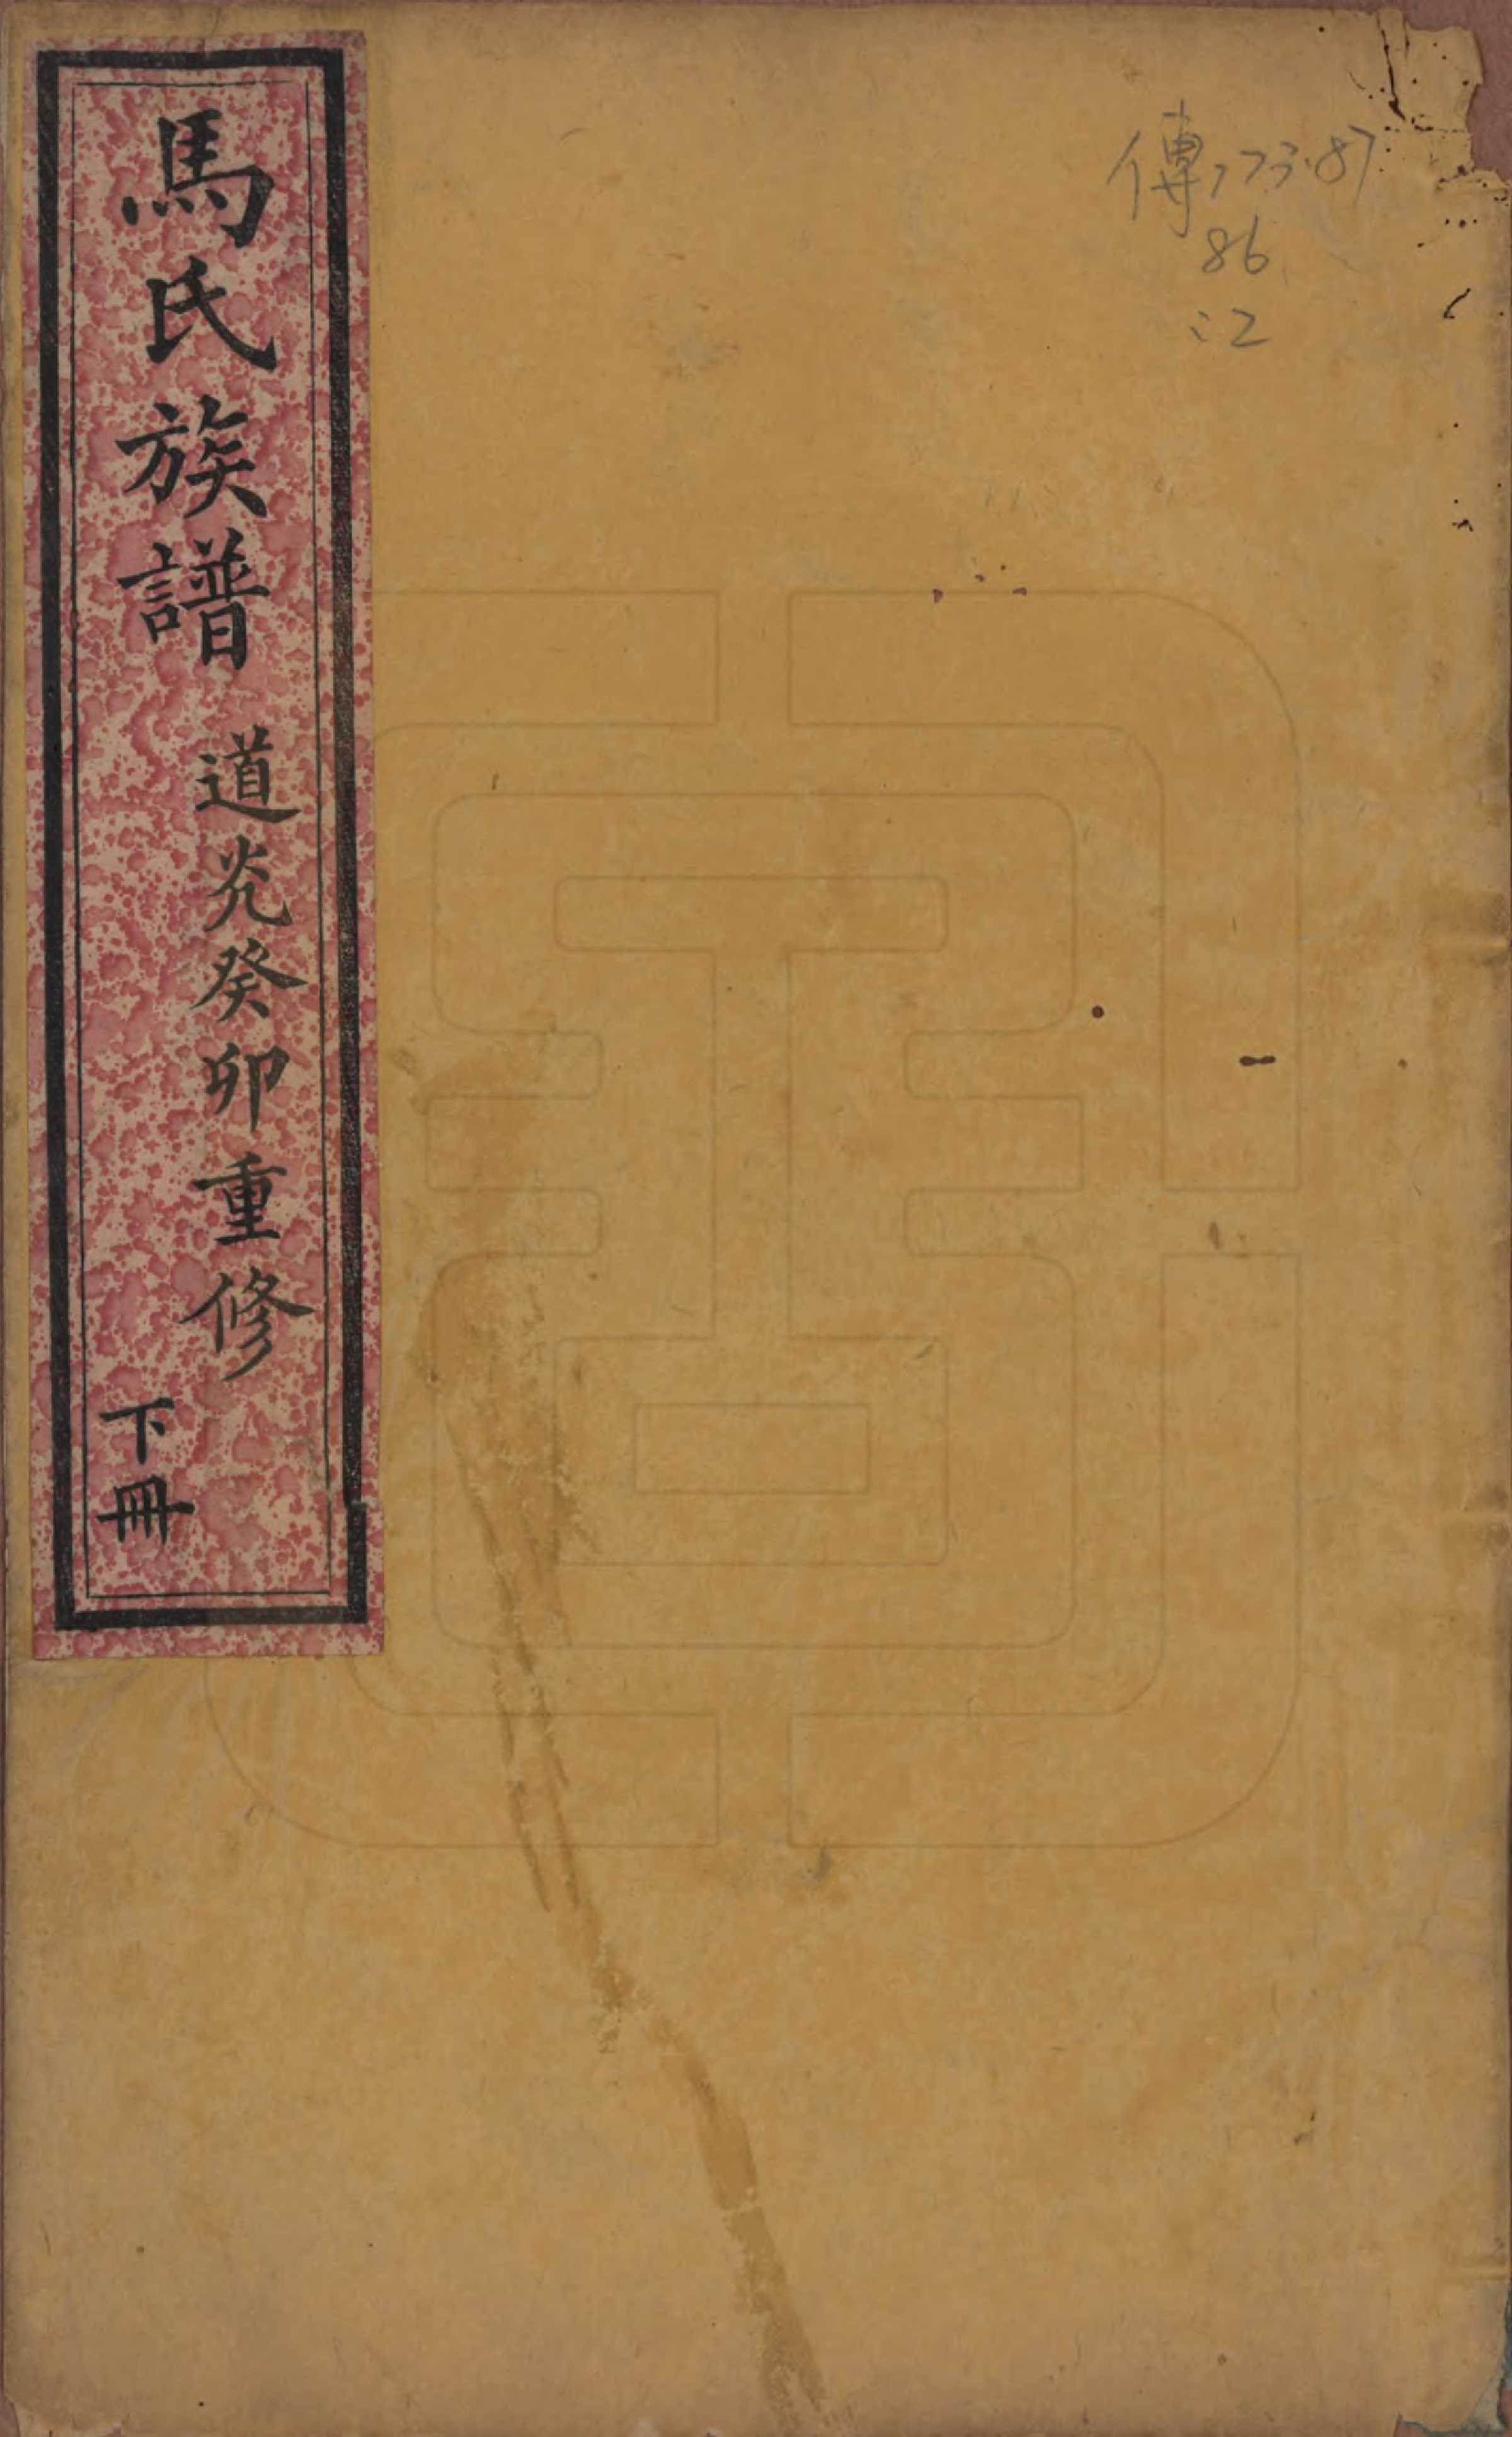 馬氏族譜
道光癸卯重修
下冊
傳773.87
86
:2